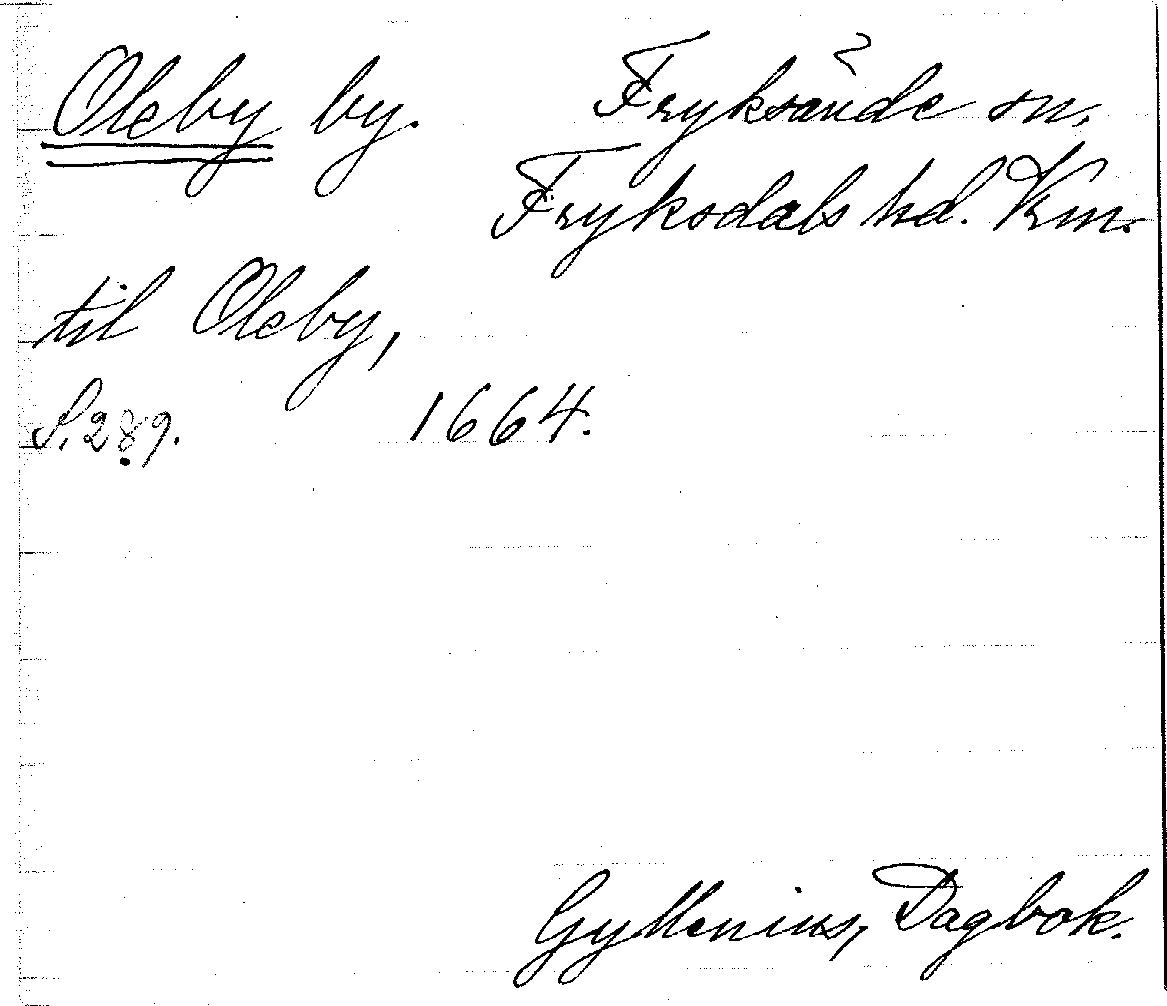 Oleby by. Fryksände sn,
Fryksdals hd. Vrm.
till Oleby,
S. 289. 1664.
Gyllenius, Dagbok.